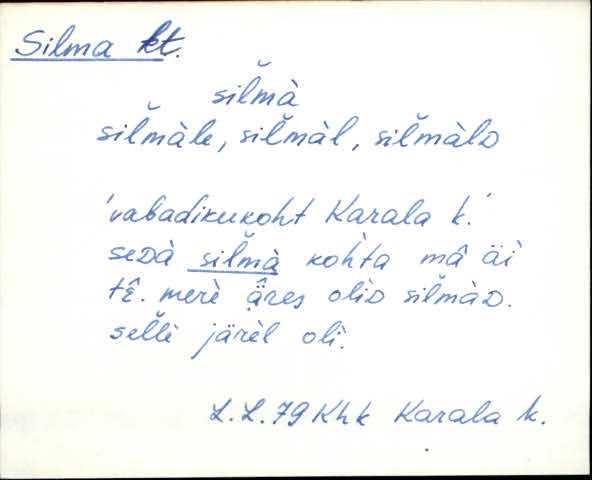 Silma kt.
sil̆mà
sil̆màle, sil̆màl, sil̆màlD
'vabadikukoht Karala k.'
seDà sil̆mà kohta mâ äì
tê. merè ä̂res olìD sil̆màD.
sellè järèl olì.
L.L. 79 Khk Karala k.